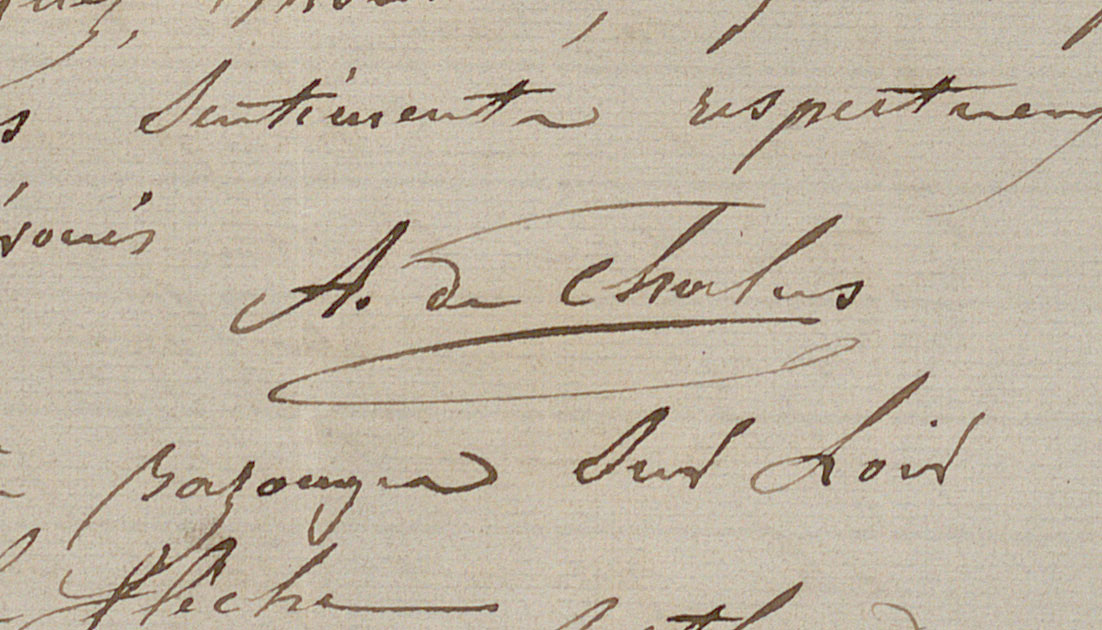 s sentiments respectueux
A. de Chalus
Bazouges sur Loir
flèche